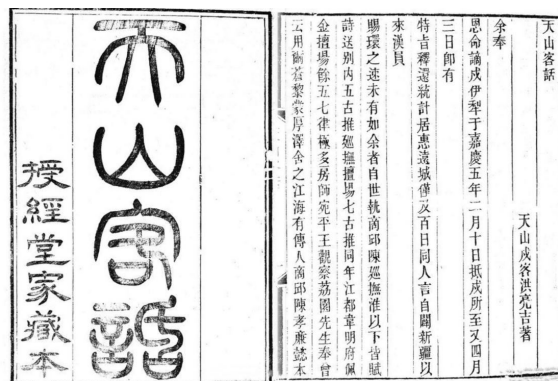 天山客話
天山戍客洪亮吉著
余奉
恩命謫戍伊犁于嘉慶五年二月十日抵戍所至又四月
三日即有
特旨釋還統計居惠遠城僅及百日同人言自闢新疆以
來漢員
賜環之速未有如余者自世執商邱陳廵撫淮以下皆賦
詩送别内五古推廵撫擅塲七古推同年江都韋明府佩
金擅塲餘五七律極多房師宛平王觀察荔園先生奉曾
云用爾若黎蒙厚澤舍之江海有傳人商邱陳孝廉懿本
天山客話
授經堂家藏本